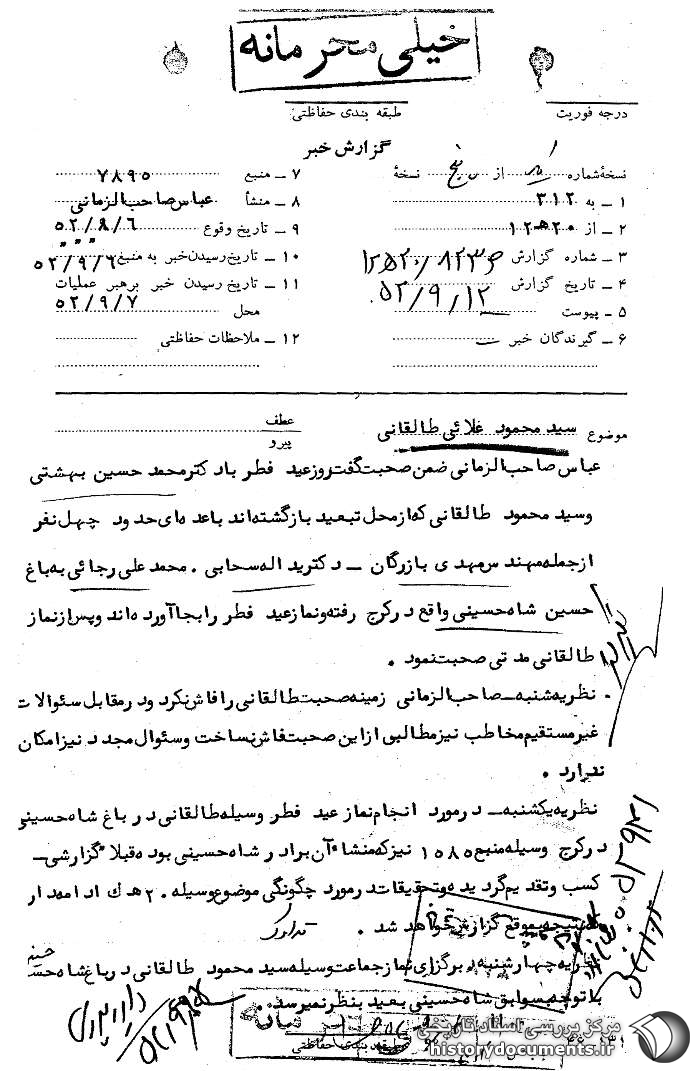 خیلی محرمانه
درجه فوریت
طبقه بندی حفاظتی
گزارش خبر
نسخهٔ شماره یک از پنج نسخهٔ
۱ ـ به ۳۱۲
۲ ـ از ۲۰ ه ۱۲
۳ ـ شماره گزارش
۴ ـ تاریخ گزارش ۵۲/۹/۱۲
۵ ـ پیوست
۶ ـ گیرندگان خبر
۷ ـ منبع ۷۸۹۵
۸ ـ منشأ عباس صاحب الزمانی
۹ ـ تاریخ وقوع ۵۲/۸/۶
۱۰ ـ تاریخ رسیدن خبر به منبع ۵۲/۹/۶
۱۱ ـ تاریخ رسیدن خبر برهبر عملیات
محل ۵۲/۹/۷
۱۲ ـ ملاحظات حفاظتی
موضوع سید محمود علائی طالقانی
عطف
پیرو
عباس صاحب الزمانی ضمن صحبت گفت روز عید فطر با دکتر محمد حسین بهشتی
و سید محمود طالقانی که از محل تبعید بازگشته اند با عده ای حدود چهل نفر
از جمله مهندس مهدی بازرگان ـ دکتر ید اله سحابی . محمد علی رجائی به باغ
حسین شاه حسینی واقع در کرج رفته و نماز عید فطر را بجا آورده اند و پس از نماز
طالقانی مدتی صحبت نمود .
نظریه شنبه ـ صاحب الزمانی زمینه صحبت طالقانی را فاش نکرد و در مقابل سئوالات
غیر مستقیم مخاطب نیز مطالبی از این صحبت فاش نساخت و سئوال مجدد نیز امکان
ندارد .
نظریه یکشنبه ـ در مورد انجام نماز عید فطر وسیله طالقانی در باغ شاه حسینی
در کرج وسیله منبع ۱۰۸۵ نیز که منشاء آن برادر شاه حسینی بوده قبلا گزارشی ـ
کسب و تقدیم گردیده و تحقیقات در مورد چگونگی موضوع وسیله ۲۰ ه ک ادامه دار
نتیجه بموقع گزارش خواهد شد .
نظریه چهارشنبه در برگزاری نماز جماعت وسیله سید محمود طالقانی در باغ شاه حسینی
با توجه بسوابق شاه حسینی بعید بنظر نمیرسد .
طبقه بندی حفاظتی
مرکز بررسی اسناد تاریخی
historydocuments.ir